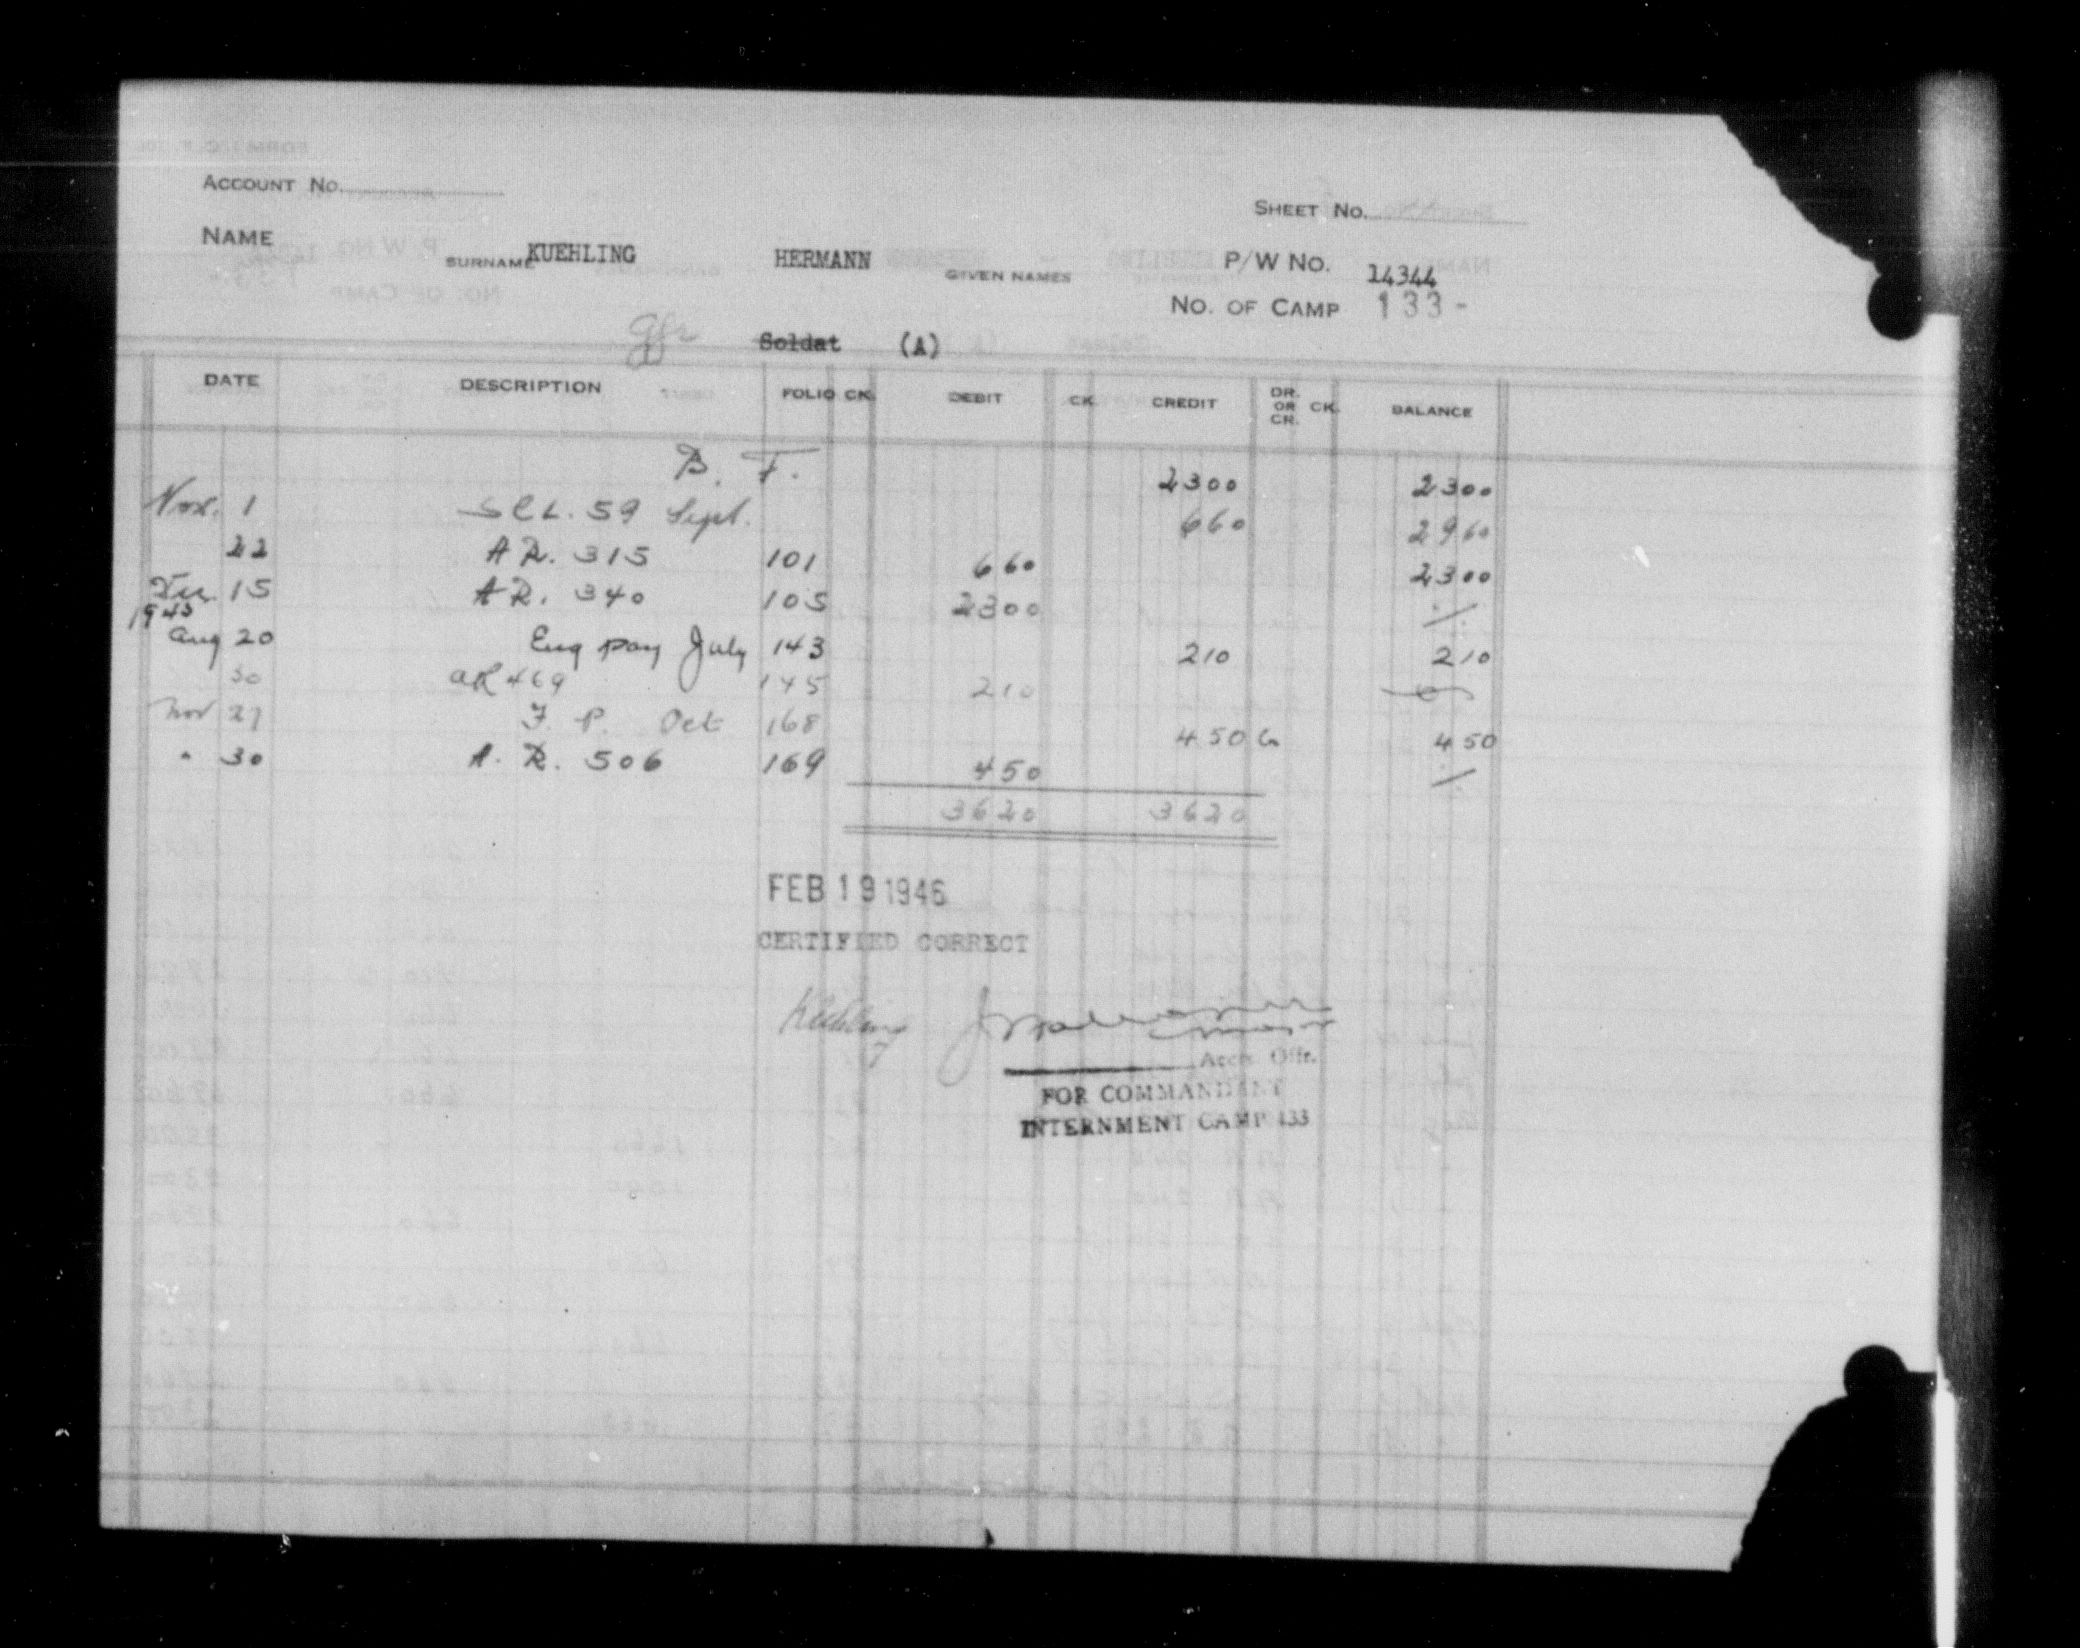 ACCOUNT NO.
SHEET NO.
NAME KUEHLING HERMANN P/W NO. 14344
SURNAME GIVEN NAMES
NO. OF CAMP 133-
gfr Soldat (A)
DATE DESCRIPTION FOLIO CK. DEBIT CK. CREDIT DR. OR CR. CK. BALANCE
B. F. 2300 2300
Nov. 1 SCL. 59 Sept. 660 2960
22 A R. 315 101 660 2300
Dec 15 A R. 340 105 2300
1945
Aug 20 Enq pay July 143 210 210
30 AR 469 145 210
Nov 27 F. P. Oct 168 450 Cr 450
" 30 A. R. 506 169 450
3620 3620
FEB 19 1946
CERTIFIED CORRECT
Kuehling
Accts Offr.
FOR COMMANDANT
INTERNMENT CAMP 133